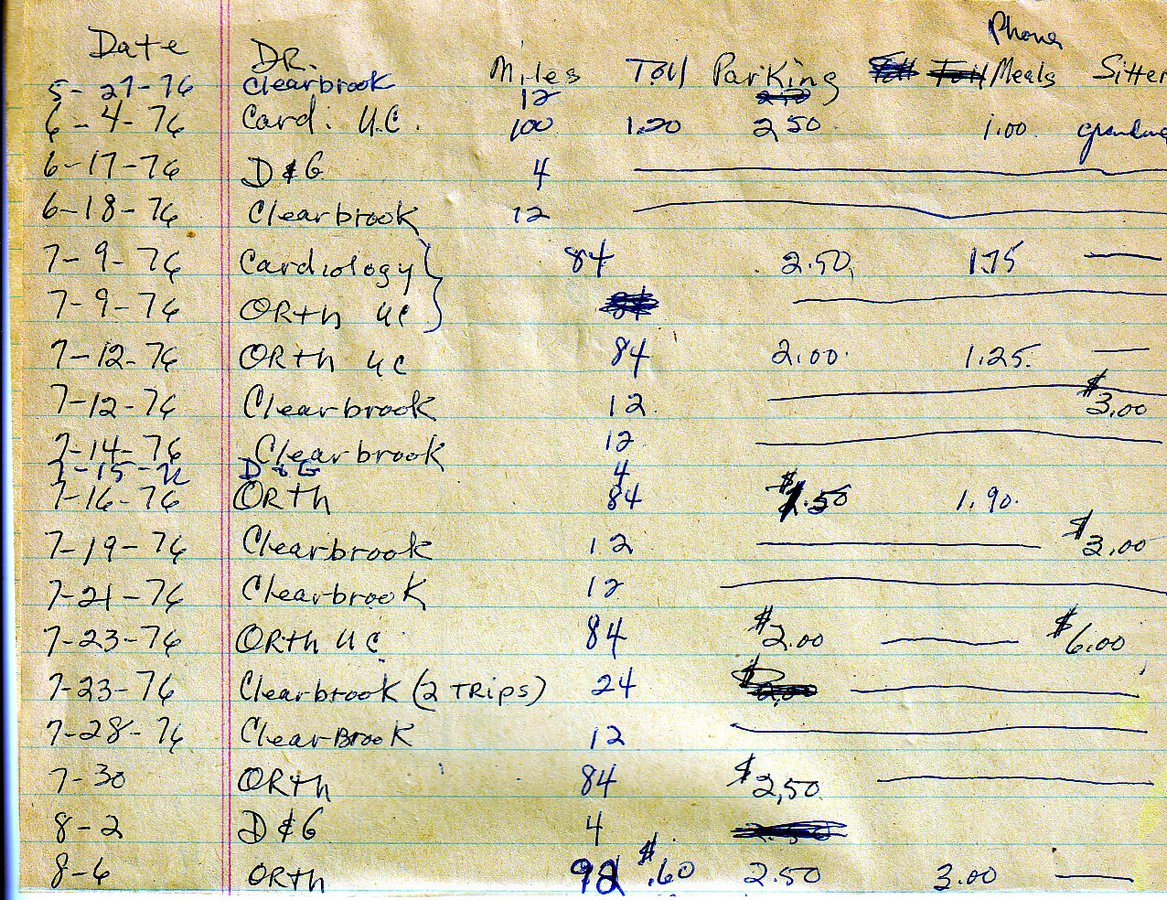 Phone
Date DR. Miles Toll Parking Meals Sitter
5-27-76 Clearbrook 12
6-4-76 Card. U.C. 100 1.20 2.50 1.00
6-17-76 D & G 4
6-18-76 Clearbrook 12
7-9-76 Cardiology 84 2.50 1.75
7-9-76 ORth UC
7-12-76 ORth UC 84 2.00 1.25
7-12-76 Clearbrook 12 $3.00
7-14-76 Clearbrook 12
7-15-76 D & G 4
7-16-76 ORth 84 1.90
7-19-76 Clearbrook 12 $3.00
7-21-76 Clearbrook 12
7-23-76 ORth UC 84 $2.00 $6.00
7-23-76 Clearbrook (2 TRips) 24
7-28-76 ClearBrook 12
7-30 ORth 84 $2,50
8-2 D & G 4
8-6 ORth 92 $.60 2.50 3.00